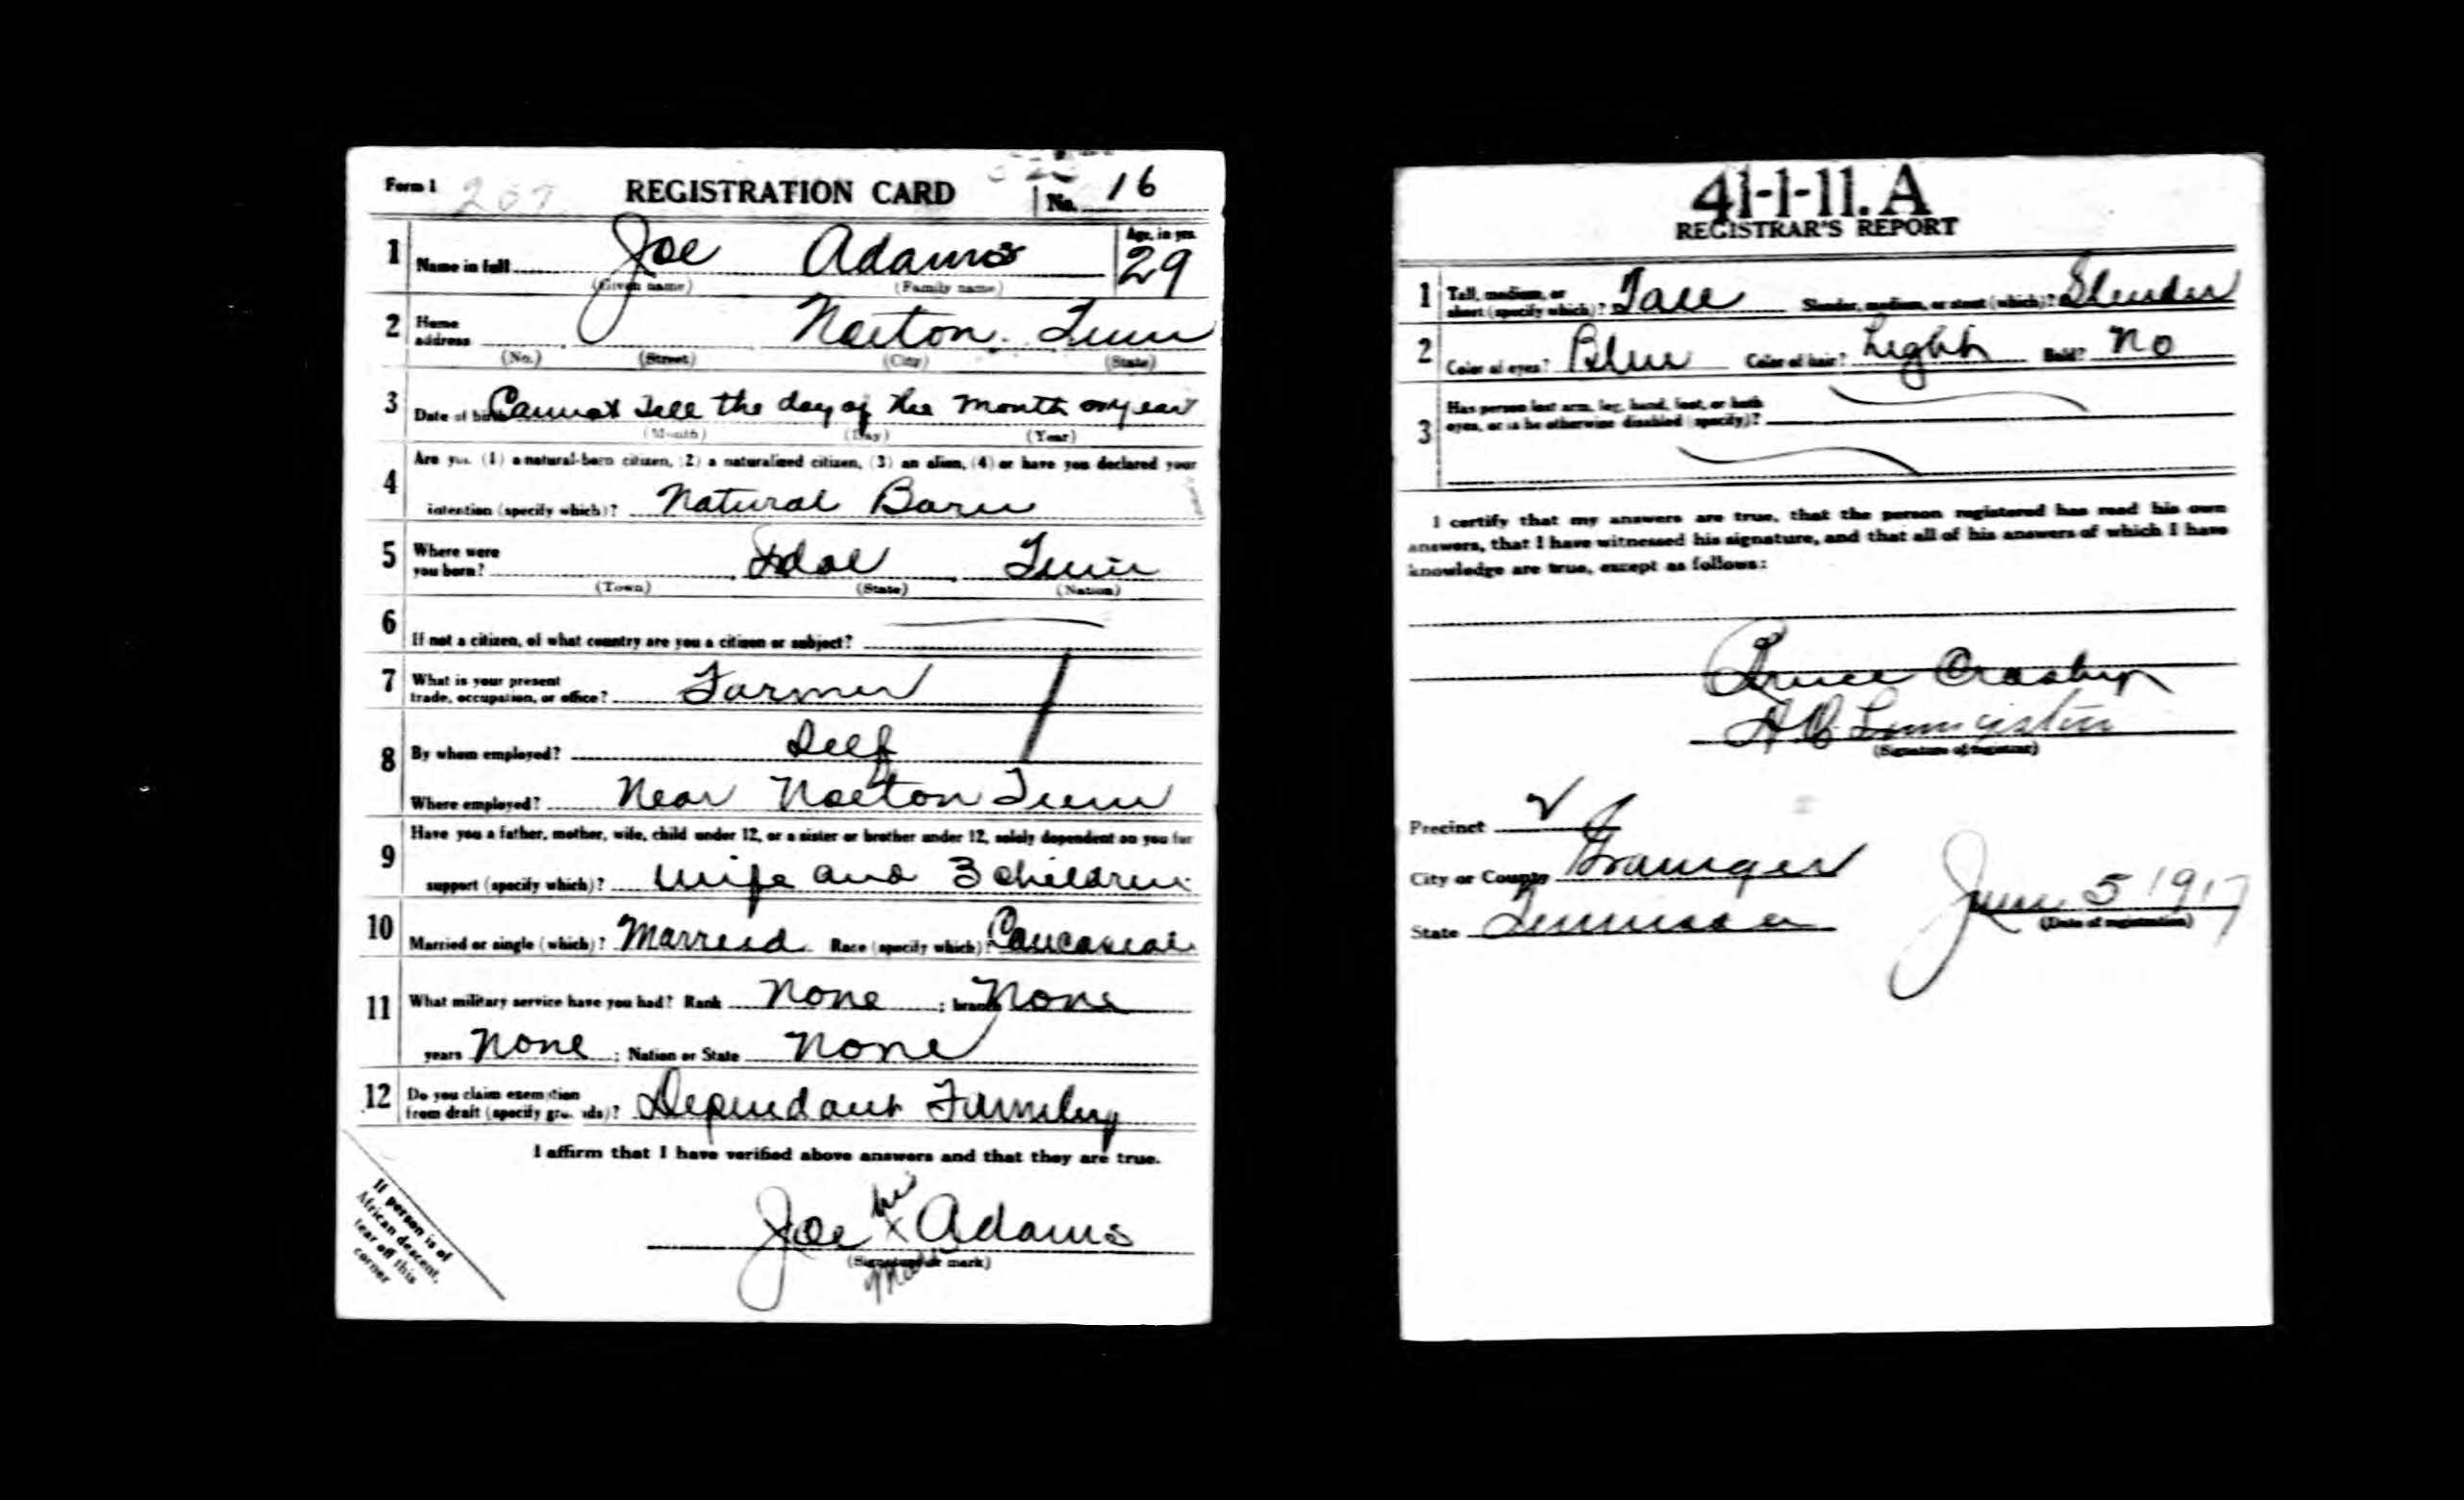 Form 1 207 REGISTRATION CARD No. 16
1 Name in full Joe Adams Age, in yrs. 29
(Given name) (Family name)
2 Home address Tenn
(No.) (Street) (City) (State)
3 Date of birth Cannot Tell the day of the month or year
(Month) (Day) (Year)
4 Are you (1) a natural-born citizen, (2) a naturalized citizen, (3) an alien, (4) or have you declared your
intention (specify which)? Natural Born
5 Where were you born? Tenn
(Town) (State) (Nation)
6 If not a citizen, of what country are you a citizen or subject?
7 What is your present trade, occupation, or office? Farmer
8 By whom employed? Self
Where employed? Near Tenn
9 Have you a father, mother, wife, child under 12, or a sister or brother under 12, solely dependent on you for
support (specify which)? Wife and 3 children
10 Married or single (which)? Marreid Race (specify which)? Caucasian
11 What military service have you had? Rank None ; branch None
years None ; Nation or State None
12 Do you claim exemption from draft (specify grounds)? Dependant Family
I affirm that I have verified above answers and that they are true.
his
Joe X Adams
(Signature or mark)
Mark
If person is of
African descent,
tear off this
corner
41-1-11. A
REGISTRAR'S REPORT
1 Tall, medium, or short (specify which)? Tall Slender, medium, or stout (which)? Slender
2 Color of eyes? Blue Color of hair? Light Bald? No
3 Has person lost arm, leg, hand, foot, or both
eyes, or is he otherwise disabled (specify)?
I certify that my answers are true, that the person registered has read his own
answers, that I have witnessed his signature, and that all of his answers of which I have
knowledge are true, except as follows:
Bruce Crosby
(Signature of registrar)
Precinct
City or County Grainger
State Tennessee
June 5 1917
(Date of registration)